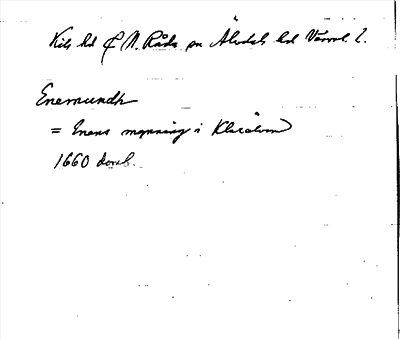 Kils hd & N. Råda sn Älvdals hd Värml. l.
Enemundh
= Enans mynning i Klarälven
1660 domb.